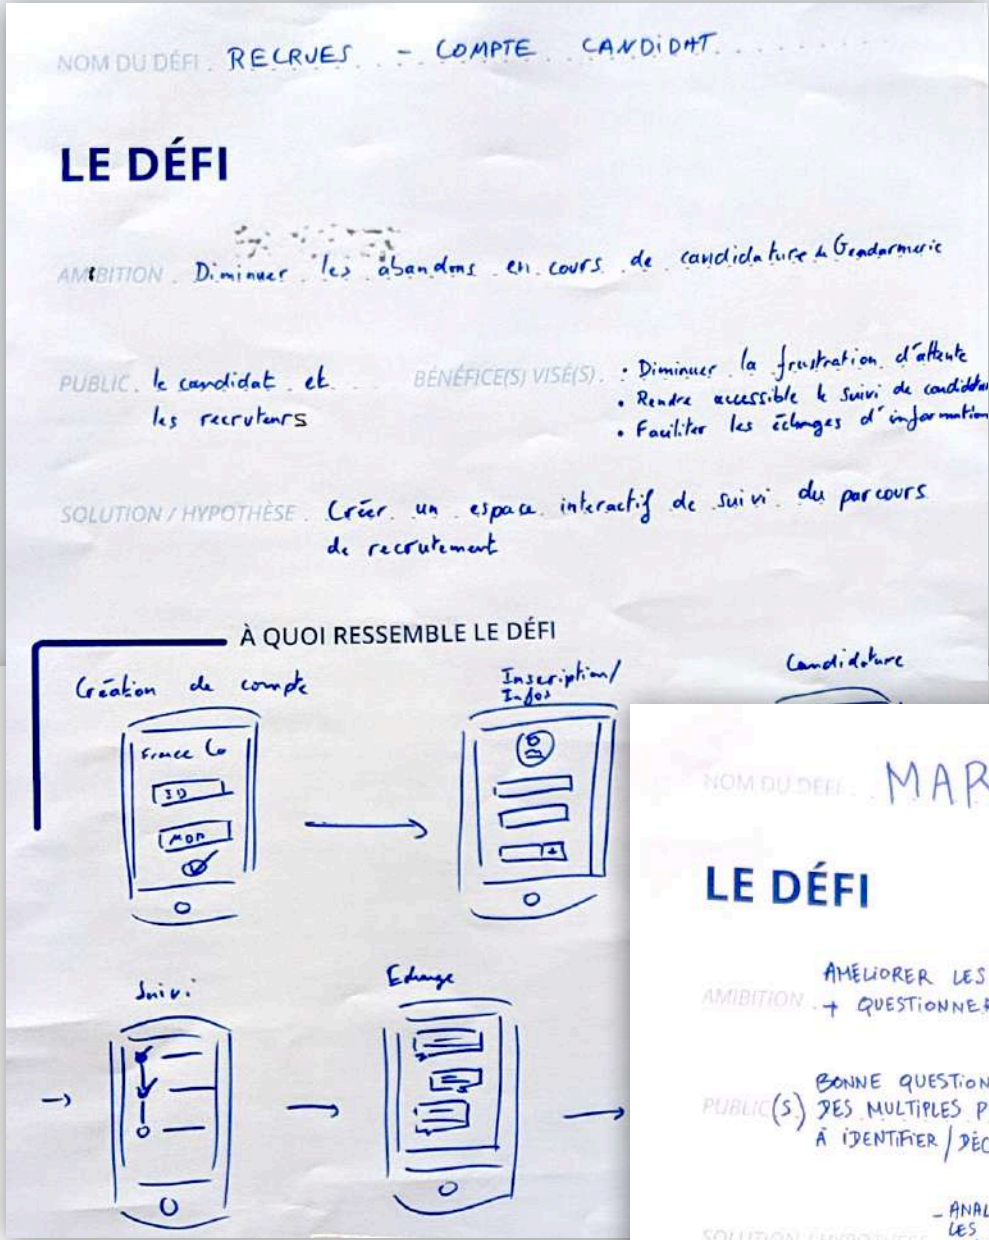 NOM DU DÉFI. RECRUES - COMPTE CANDIDAT
LE DÉFI
AMBITION. Diminuer les abandons en cours de candidature Gendarmerie
PUBLIC. le candidat et
les recruteurs
BÉNÉFICE(S) VISÉ(S). • Diminuer la frustration d'attente
• Rendre accessible le suivi de candidatu
• Faciliter les échanges d'information
SOLUTION / HYPOTHÈSE. Créer un espace interactif de suivi du parcours
de recrutement
À QUOI RESSEMBLE LE DÉFI
Création de compte
France Co
ID
MDP
Inscription/
Infos
Candidature
Suivi
Echange
NOM DU DÉFI. MAR
LE DÉFI
AMELIORER LES
AMIBITION. + QUESTIONNER
BONNE QUESTION
PUBLIC(S) DES MULTIPLES P
À IDENTIFIER / DÉC
- ANAL
SOLUTION / HYPOTHÈSE LES